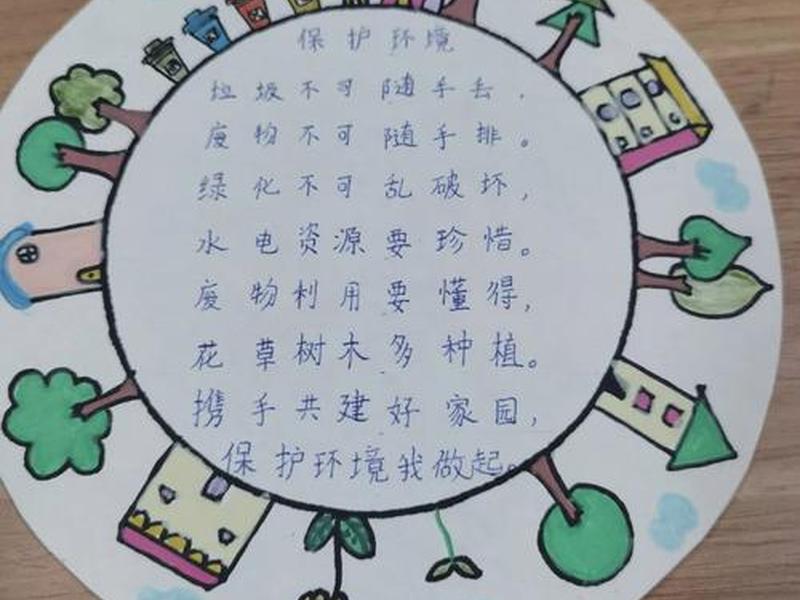 保护环境
垃圾不可随手丢，
废物不可随手排。
绿化不可乱破坏，
水电资源要珍惜。
废物利用要懂得，
花草树木多种植。
携手共建好家园，
保护环境我做起。